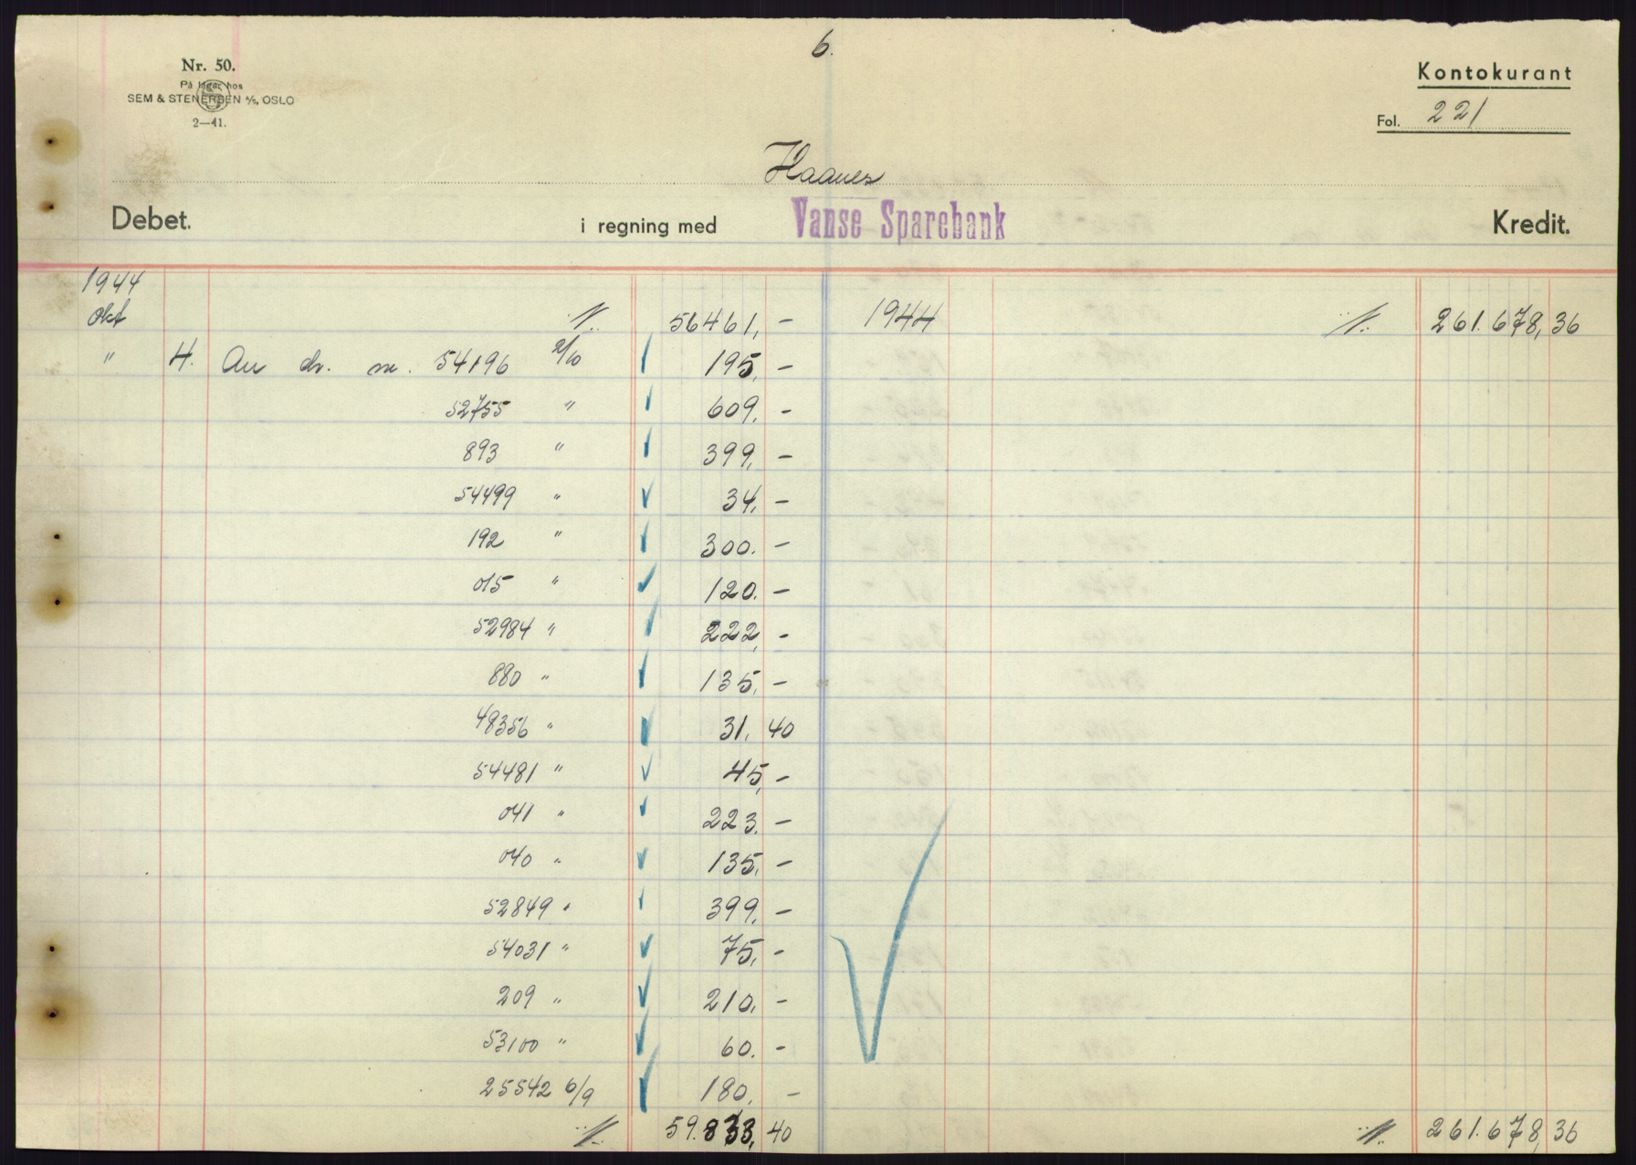 6.
Nr. 50.
På lager hos
SEM & STENERSEN A/S, OSLO
2—41.
Kontokurant
Fol. 221
Haanes
Debet. i regning med Vanse Sparebank Kredit.
1944
Okt 56461,- 1944 261.678,36
" 4. An dr. nr. 54196 2/10 195,-
52755 " 609,-
893 " 399,-
54499 " 34,-
192 " 300.-
015 " 120.-
52984 " 222,-
880 " 135,-
48356 " 31,40
54481 " 45,-
041 " 223.-
040 " 135,-
52849 " 399,-
54031 " 75,-
209 " 210,-
53100 " 60.-
25542 6/9 180,-
59.833,40 261.678,36